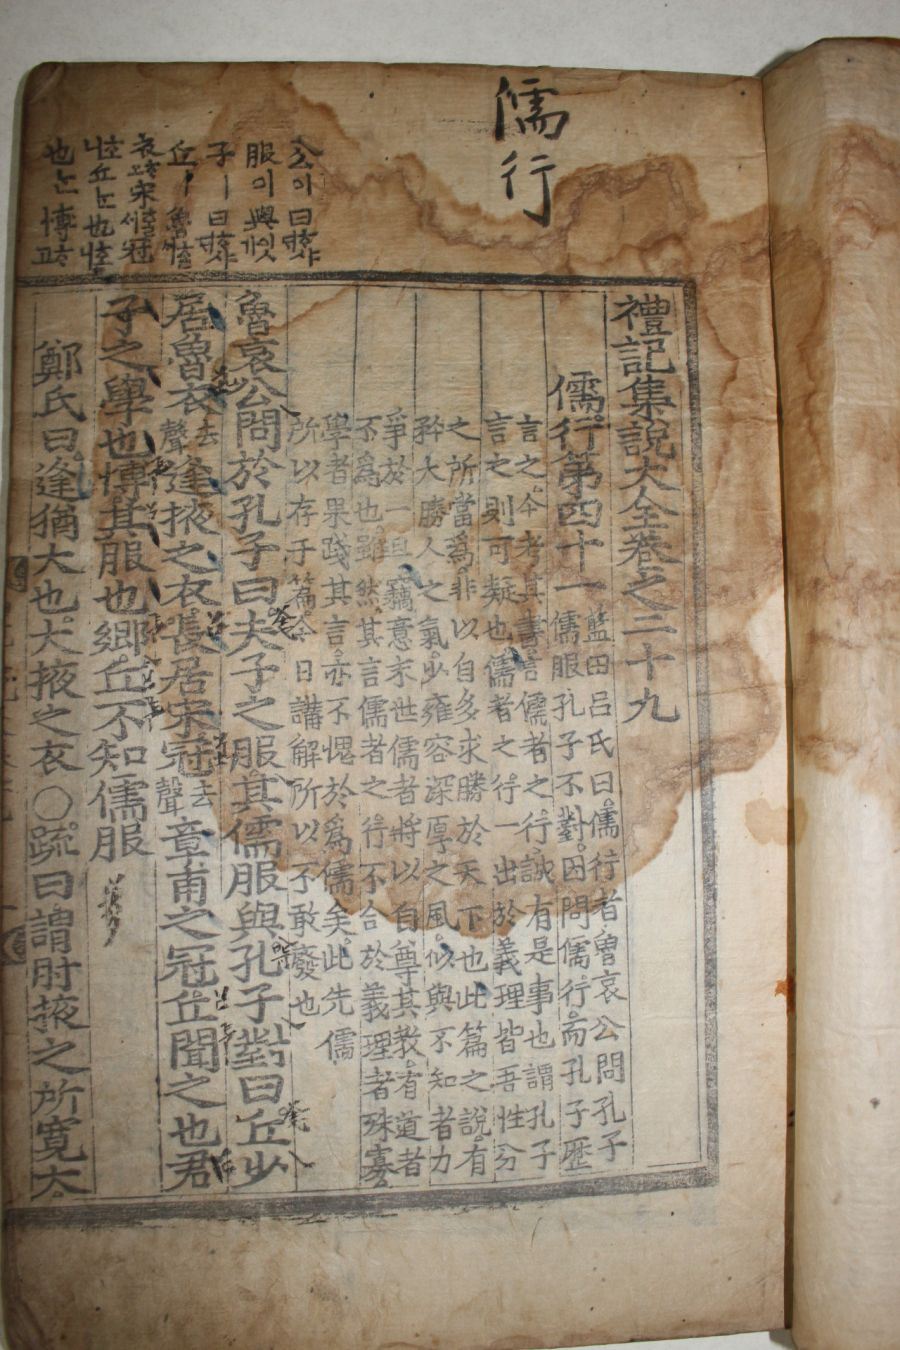 儒行
公이曰
服이與
子ㅣ曰
禮記集說大全卷之二十九
儒行第四十一
藍田呂氏曰儒行者魯哀公問孔子
儒服孔子不對因問儒行而孔子歷
言之今考其書言儒者之行誠有是事也謂孔子
言之則可疑也儒者之行一出於義理皆吾性分
之所當爲非以自多求勝於天下也此篇之說有
矜大勝人之氣少雍容深厚之風似與不知者力
爭於一旦竊意末世儒者將以自尊其敎有道者
不爲也雖然其言儒者之行不合於義理者殊寡
學者果踐其言亦不愧於爲儒矣此先儒
所以存于篇今日講解所以不敢廢也
魯哀公問於孔子曰夫子之服其儒服與孔子對曰丘少
居魯衣去聲逢掖之衣長居宋冠去聲章甫之冠丘聞之也君
子之學也博其服也鄉丘不知儒服
鄭氏曰逢猶大也大掖之衣○疏曰謂肘掖之所寬大